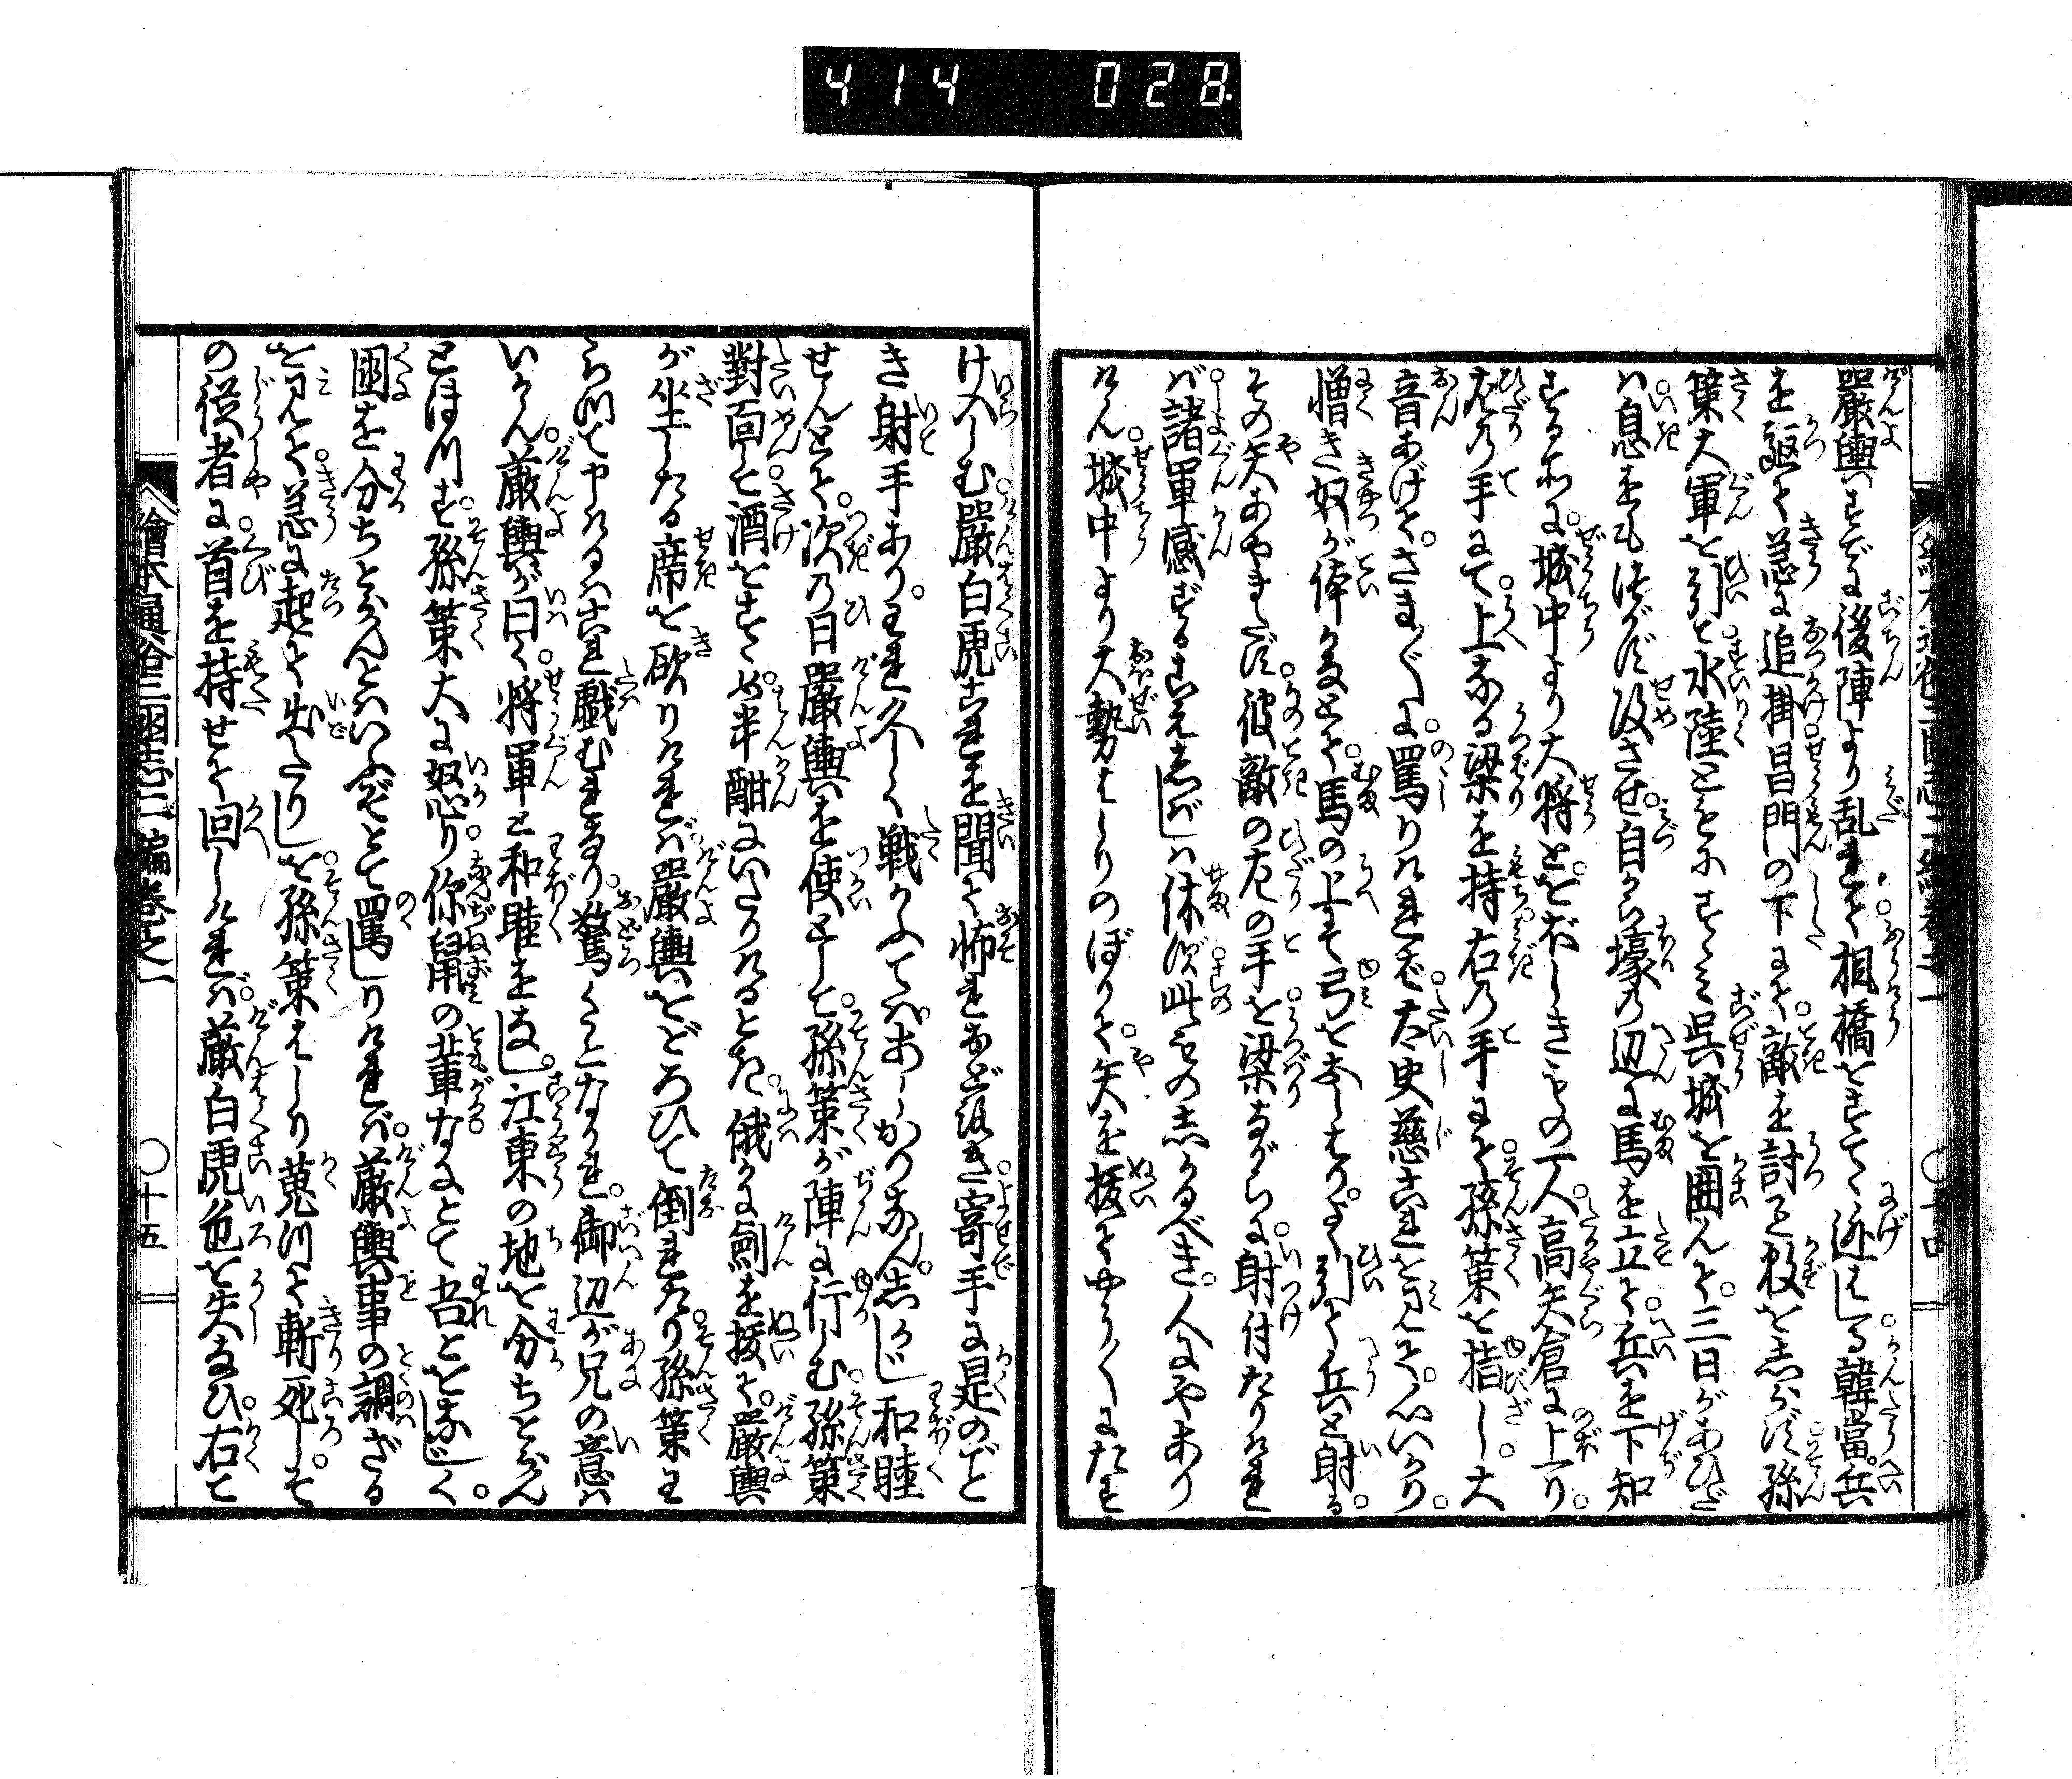 414 028
嚴輿すでに後陣より乱れて相橋をすてゝ迯はしる韓當兵
を駆て急に追掛昌門の下にて敵を討こと数をしらず孫
策大軍を引て水陸ともにすゝミ呉城を囲んで三日があひだ
ハ息をも継がず攻させ自から壕の辺に馬を立て兵を下知
する所に城中より大将とをぼしきもの一人高矢倉に上り
左の手にて上なる梁を持右の手にて孫策を指し大
音あげてさま〴〵に罵りけれバ太史慈これを見て心いかり
憎き奴が体かなとて馬の上にて弓をなしはりよく引て兵ど射る
その矢あやまたず彼敵の左の手を梁ながらに射付たりけれ
バ諸軍感ずるこゑしばしハ休ず此ものしかるべき人にやあり
けん城中より大勢はしりのぼりて矢を抜てやう〳〵にたす
け入しむ嚴白虎これを聞て怖れおどろき寄手に是のごと
き射手ありわれ久しく戦かふてハあしかりなんしかじ和睦
せんとて次の日嚴輿を使として孫策が陣に行しむ孫策
對面して酒をすゝめ半酣にいたりけるとき俄かに劔を抜て嚴輿
が坐したる席を砍りけれバ嚴輿をどろひて倒れたり孫策わ
らつて申けるハこれ戯むれなり驚くことなかれ御辺が兄の意ハ
いかん嚴輿が曰く将軍と和睦をなし江東の地を分ちとらん
とほつす孫策大に怒り你鼠の輩なにとて吾とをなじく
国を分ちとらんとハいふぞとて罵しりけれバ嚴輿事の調ざる
を見て急に起て出たりしを孫策はしり蒐つて斬死しそ
の従者に首を持せて回しけれバ嚴白虎色を失なひ右と
繪本通俗三國志二編巻之一 〇十五